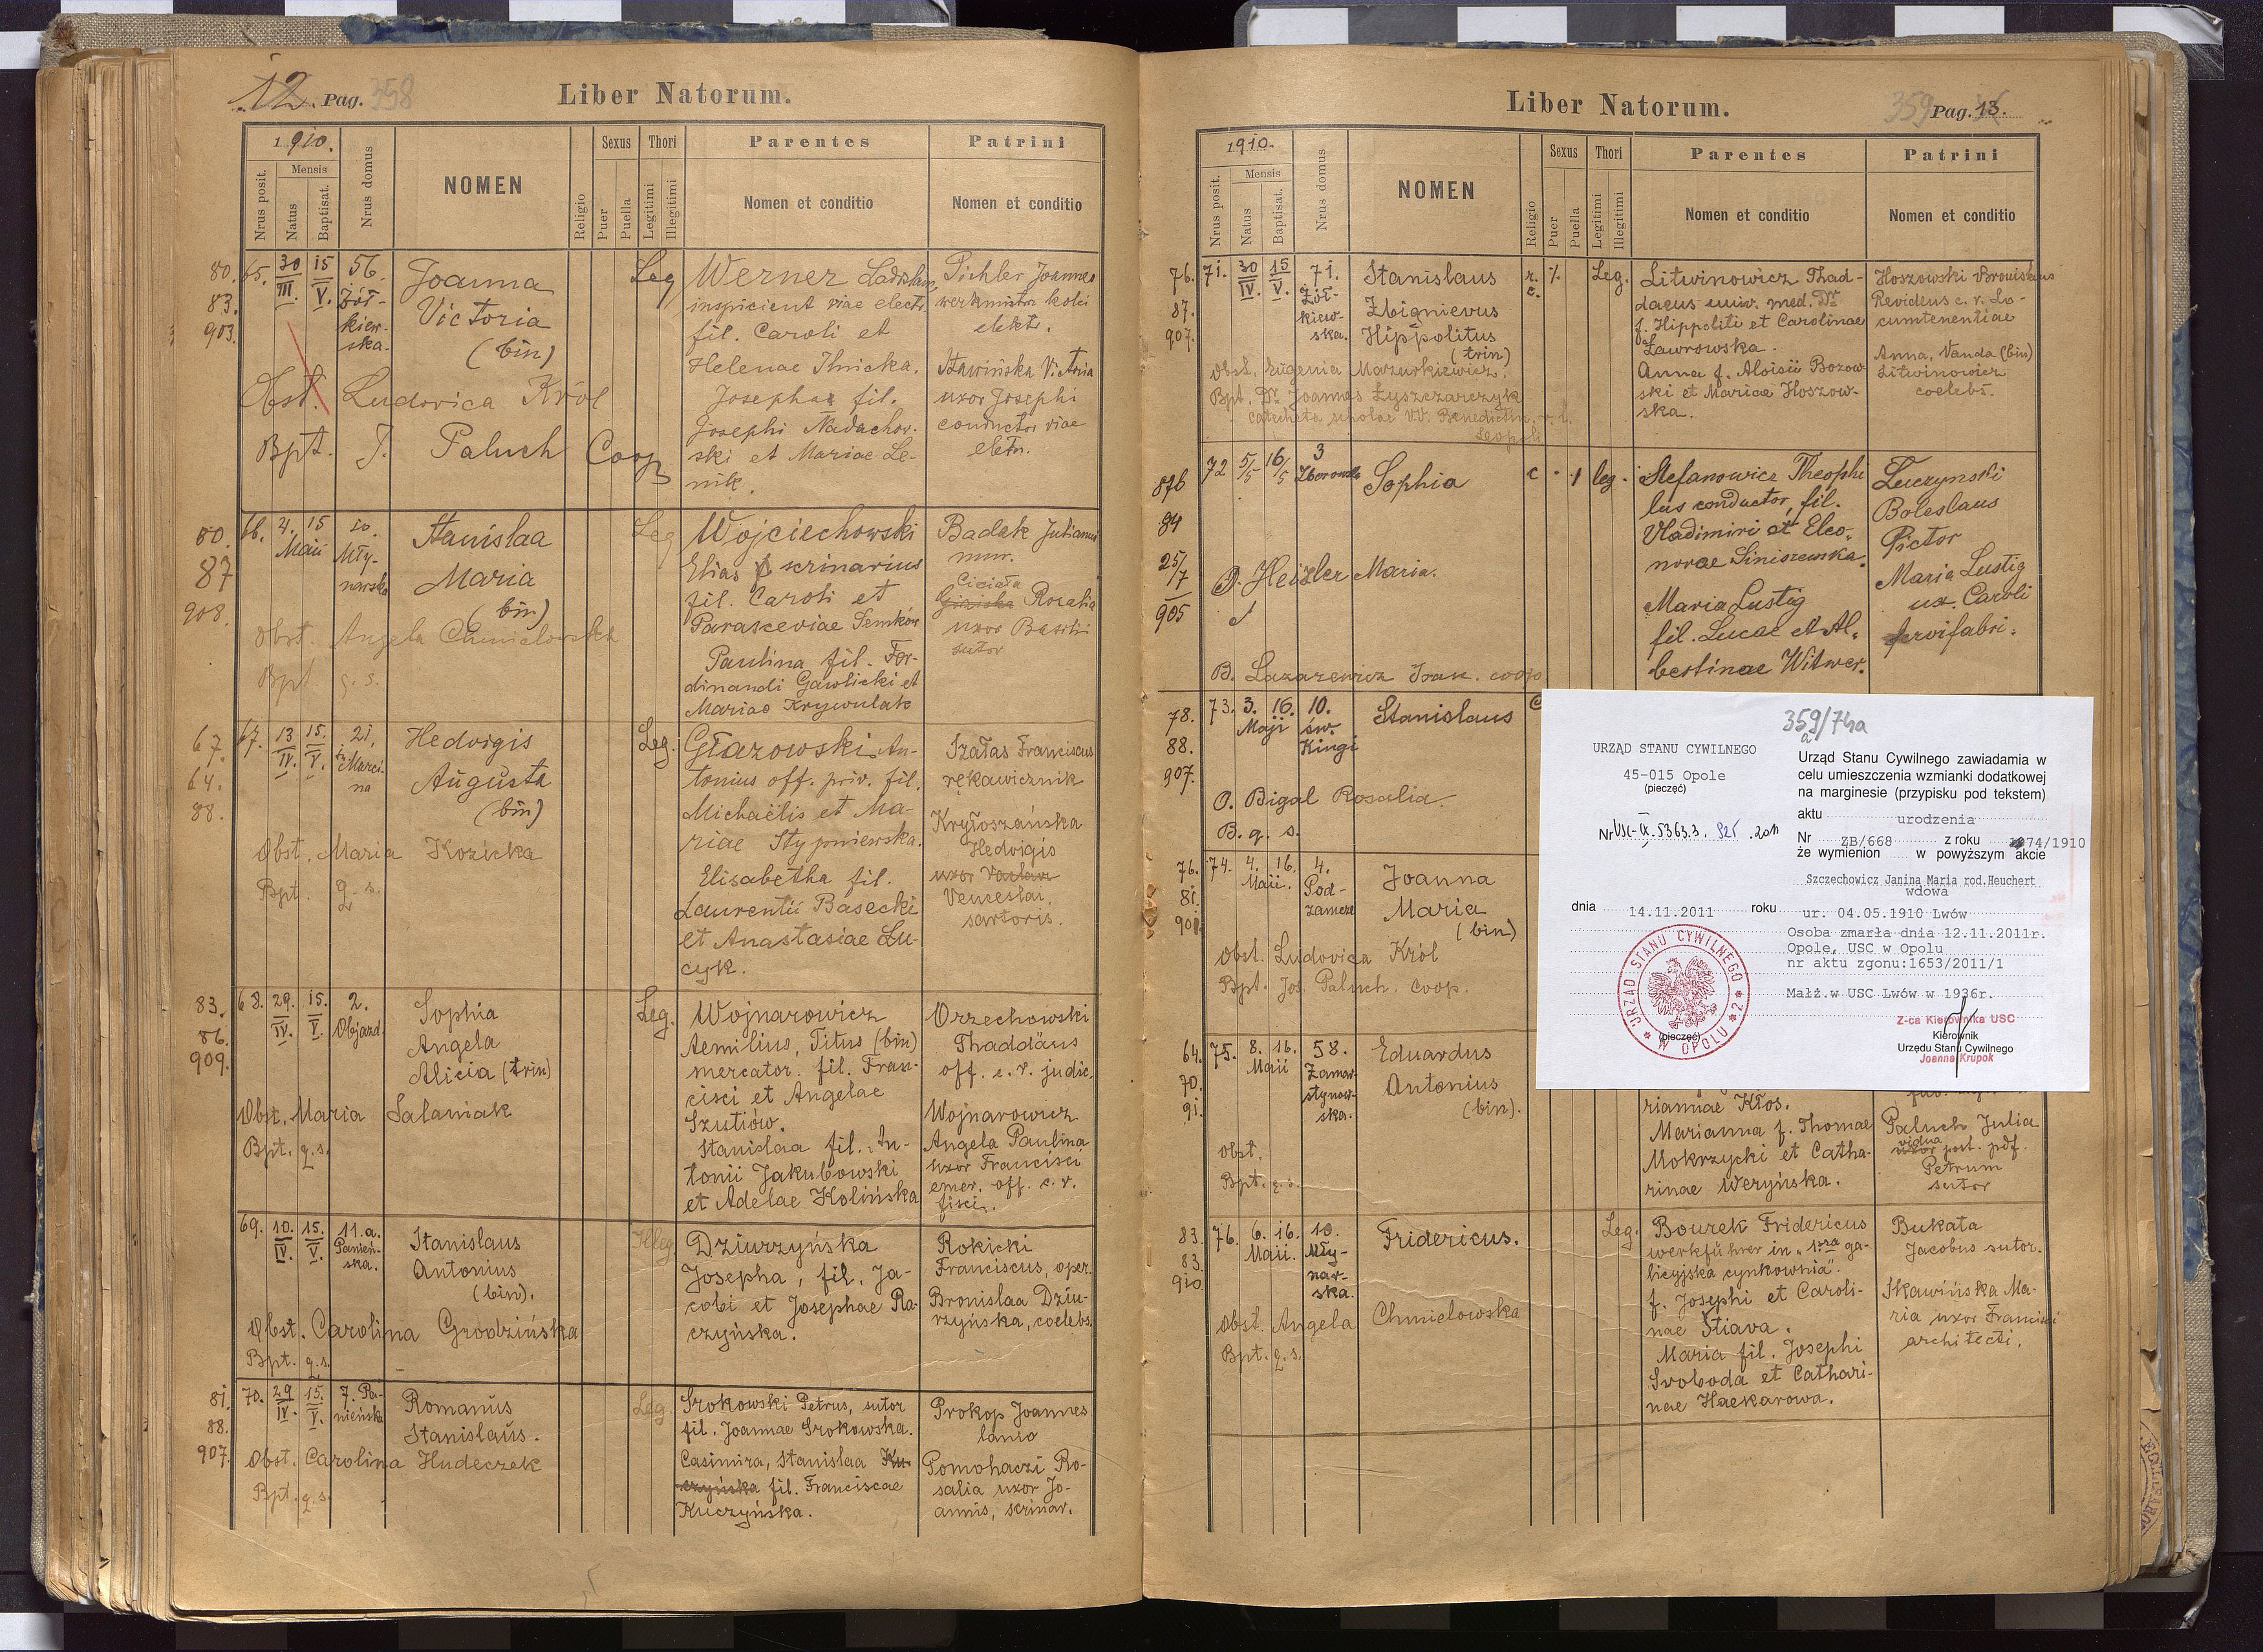 12. Pag. 358
Liber Natorum.
1910.
Nrus posit.
Mensis
Natus
Baptisat.
Nrus domus
NOMEN
Religio
Sexus
Puer
Puella
Thori
Legitimi
Illegitimi
Parentes
Nomen et conditio
Patrini
Nomen et conditio
80.
83.
903.
65. 30/III. 15/V. 56.
Żół-
kiew-
ska.
Joanna
Victoria
(bin)
Obst. Ludovica Król
Bpt. J. Paluch Coop
Leg
Werner Ladislaus
inspicient viae electr.
fil. Caroli et
Helenae Thicka.
Josepha fil.
Josephi Nadachow-
ski et Mariae Le-
nik.
Pichler Joannes
werkmistrz kolei
elektr.
Stawińska Victoria
uxor Josephi
conductor viae
eletr.
80.
87
908.
66. 4. 15 10
Maii
Mły-
narska
Stanislaa
Maria
(bin)
Obst. Angela Chmielowska
Bpt. q. s.
Leg
Wojciechowski
Elias scrinarius
fil. Caroli et
Parasceviae Semków
Paulina fil. Fer-
dinandi Gawlicki et
Mariae Krywulak
Badak Julianus
mur.
Ciciała
Rozalia
uxor Basilii
sutor
67.
64.
88.
67. 13/IV. 15./V. 21.
Marci-
na
Hedvigis
Augusta
(bin)
Obst. Maria Kozicka
Bpt. q. s.
Leg.
Głazowski An-
tonius off. priv. fil.
Michaëlis et Ma-
riae Stypniewska.
Elisabetha fil.
Laurentii Basecki
et Anastasiae Lu-
cyk.
Szałas Franciscus
rękawicznik
Kryłoszańska
Hedvigis
uxor
Venceslai,
sartoris.
83.
86.
909.
68. 29./IV. 15./V. 2.
Objazd
Sophia
Angela
Alicia (trin)
Obst. Maria Salaniak
Bpt. q. s.
Leg.
Wojnarowicz
Aemilius, Titus (bin)
mercator. fil. Fran-
cisci et Angelae
Szutiów.
Stanislaa fil. An-
tonii Jakubowski
et Adelae Kolińska
Orzechowski
Thaddäus
off. c. r. judic.
Wojnarowicz
Angela Paulina
uxor Francisci
emer. off. c. r.
fisci.
69. 10./IV. 15./V. 11.a.
Panień-
ska.
Stanislaus
Antonius
(bin).
Obst. Carolina Grodzińska
Bpt. q. s.
Illeg.
Dziurzyńska
Josepha, fil. Ja-
cobi et Josephae Ra-
czyńska.
Rokicki
Franciscus, oper.
Bronislaa Dziu-
rzyńska, coelebs.
81.
88.
907.
70. 29/IV. 15./V. 7. Pa-
nieńska
Romanus
Stanislaus.
Obst. Carolina Hudeczek
Bpt. q. s.
Leg.
Srokowski Petrus, sutor
fil. Joannae Srokowska.
Casimira, Stanislaa Ku-
czyńska fil. Franciscae
Kuczyńska.
Prokop Joannes
lanio
Pomohaczi Ro-
salia uxor Jo-
annis, scrinar.
Liber Natorum.
359 Pag. 13.
1910.
Nrus posit.
Mensis
Natus
Baptisat.
Nrus domus
NOMEN
Religio
Sexus
Puer
Puella
Thori
Legitimi
Illegitimi
Parentes
Nomen et conditio
Patrini
Nomen et conditio
76.
87.
907.
71. 30/IV. 15/V. 71.
Żół-
kiew-
ska.
Stanislaus
Zbignievus
Hippolitus
(trin)
Obst. Eugenia Mazurkiewicz.
Bpt. Dr. Joannes Łyszczarczyk
catecheta scholae VV. Benedictin. r. l.
Leopoli
r. c. 1. Leg.
Litwinowicz Thad-
daeus univ. med. Dr
f. Hippoliti et Carolinae
Ławrowska.
Anna f. Aloisii Bozow-
ski et Mariae Hoszow-
ska.
Hoszowski Bronislaus
Revidens c. r. Lo-
cumtenentiae
Anna, Vanda (bin)
Litwinowicz
coelebs.
876
84
25/7
905
72 5/5 16/5 3
Sophia
c - 1 leg.
O. Heizler Maria.
B. Lazarewicz Isak. coop
Stefanowicz Theophi
lus conductor, fil.
Vladimiri et Eleo-
norae Siniszewska.
Maria Lustig
fil. Lucae et Al-
bertinae Witwer.
Luczynski
Boleslaus
Pictor
Maria Lustig
ux. Caroli
fervifabri.
78.
88.
907.
73. 3. 16. 10.
Maji św.
Kingi
Stanislaus
O. Bigal Rosalia.
B. q. s.
76.
81.
74. 4. 16. 4.
Maii. Pod-
zamcze
Joanna
Maria
(bin)
Obst. Ludovica Król
Bpt. Jos. Paluch. coop.
64.
70.
91.
75. 8. 16. 58.
Maii Zamar-
stynow-
ska.
Eduardus
Antonius
(bin).
Obst.
Bpt. q. s.
riannae Kłos.
Marianna f. Thomae
Mokrzycki et Catha-
rinae Weryńska.
Paluch Julia
vidua
uxor post. pdf.
Petrum
sutor
83.
83.
910
76. 6. 16. 10.
Maii. Mły-
nar-
ska.
Fridericus.
Obst. Angela Chmielowska
Bpt. q. s.
Leg.
Bourek Fridericus
werkführer in „1sza ga-
licyjska cynkownia".
f. Josephi et Caroli-
nae Štiava.
Maria fil. Josephi
Svoboda et Cathari-
nae Haekarowa.
Bukata
Jacobus sutor.
Skawińska Ma-
ria uxor Francisci
architecti.
359/74a
URZĄD STANU CYWILNEGO
45-015 Opole
(pieczęć)
Nr USC-IX.5363.3. 925 .2011
Urząd Stanu Cywilnego zawiadamia w
celu umieszczenia wzmianki dodatkowej
na marginesie (przypisku pod tekstem)
aktu urodzenia
Nr ZB/668 z roku 1974/1910
że wymienion w powyższym akcie
Szczechowicz Janina Maria rod.Heuchert
wdowa
dnia 14.11.2011 roku ur. 04.05.1910 Lwów
Osoba zmarła dnia 12.11.2011r.
Opole, USC w Opolu
nr aktu zgonu:1653/2011/1
Małż.w USC Lwów w 1936r.
URZĄD STANU CYWILNEGO * 2 * W OPOLU *
(pieczęć)
Z-ca Kierownika USC
Kierownik
Urzędu Stanu Cywilnego
Joanna Krupok